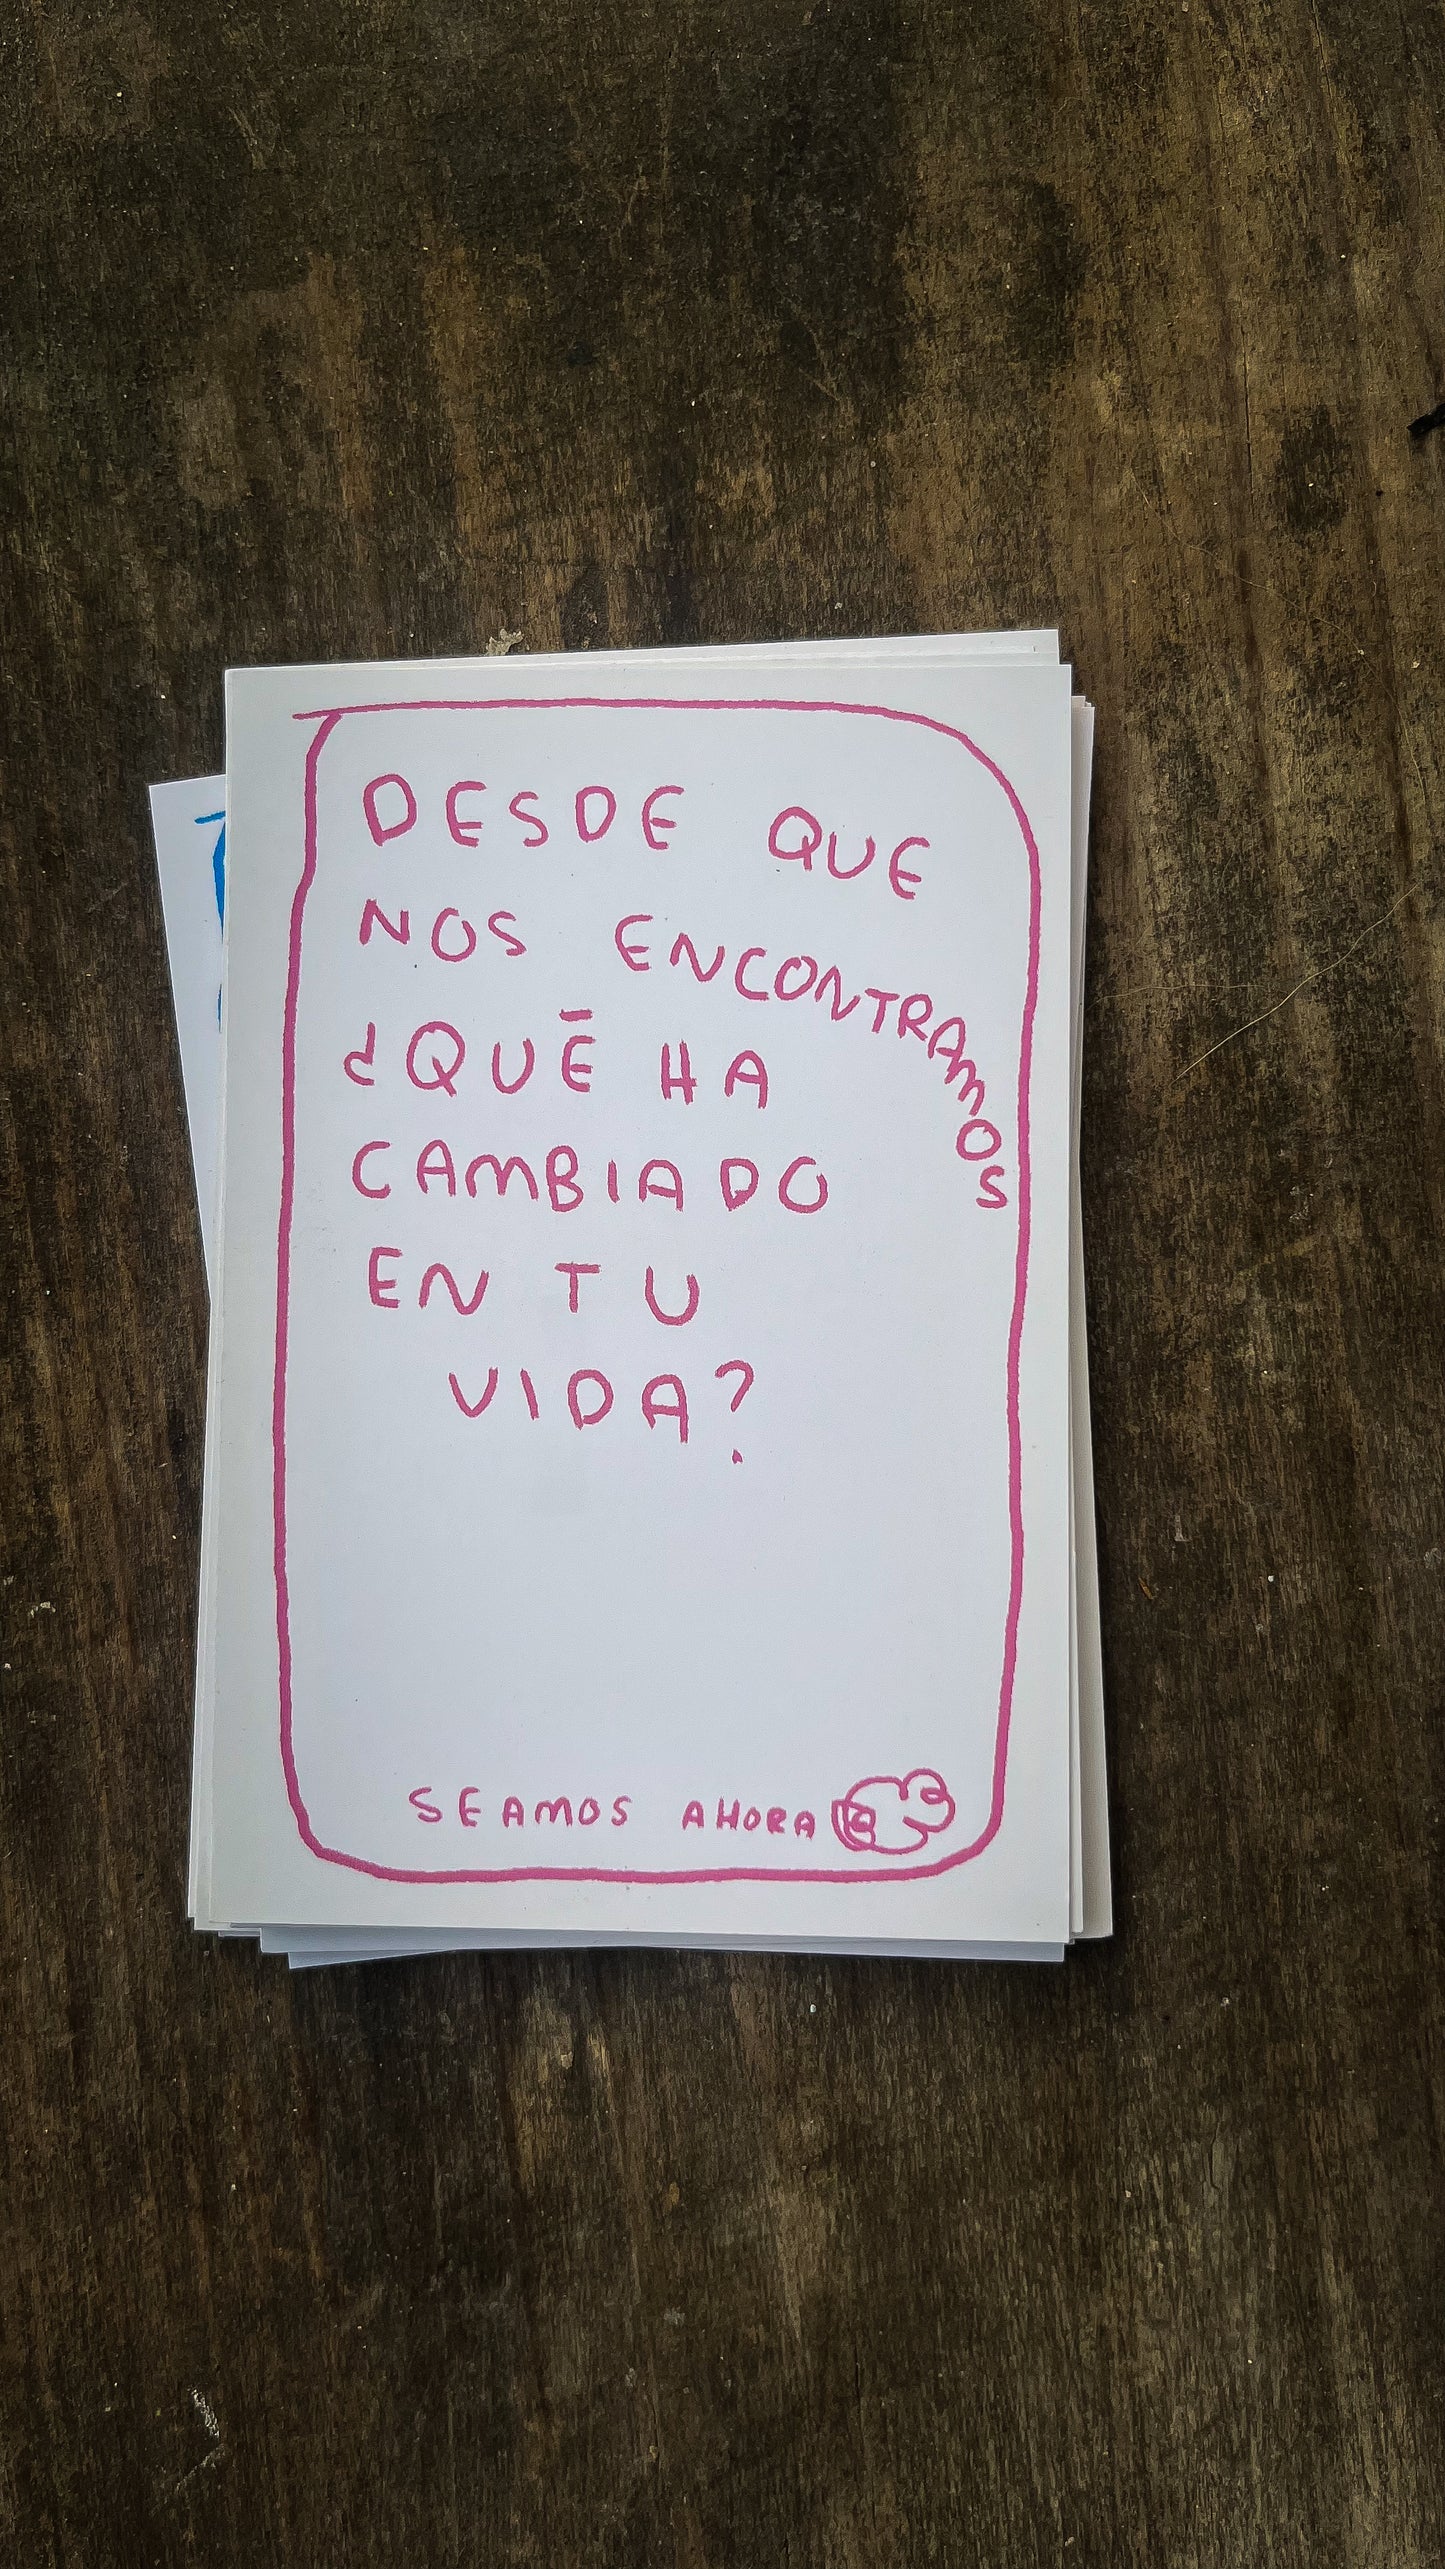 DESDE QUE
NOS ENCONTRAMOS
¿QUÉ HA
CAMBIADO
EN TU
VIDA?
SEAMOS AHORA